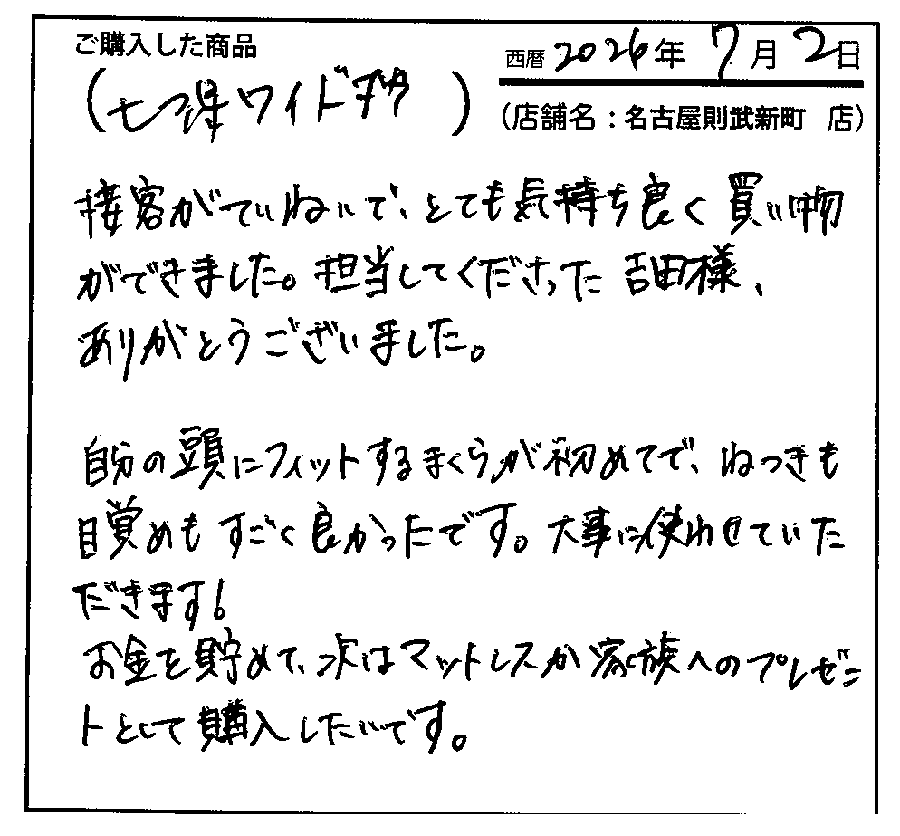 ご購入した商品
西暦 2026年 7月 2日
(七つ星ワイド)
(店舗名：名古屋則武新町 店)
接客がていねいで、とても気持ち良く買い物
ができました。担当してくださった吉田様、
ありがとうございました。
自分の頭にフィットするまくらが初めてで、ねつきも
目覚めもすごく良かったです。大事に使わせていた
だきます!
お金を貯めて、次はマットレスか家族へのプレゼン
トとして購入したいです。